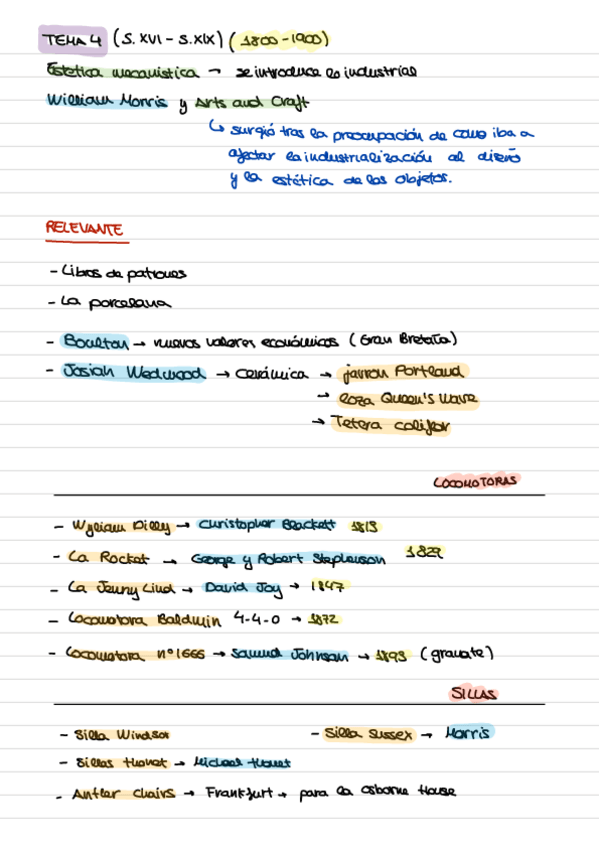 TEMA 4 (S. XVI - S. XIX) (1800-1900)
Estética mecanística → se introduce lo industrial
William Morris y Arts and Craft
↳ surgió tras la preocupación de como iba a
afectar la industrialización al diseño
y la estética de los objetos.
RELEVANTE
- Libros de patrones
- La porcelana
- Boulton → nuevos valores económicos (Gran Bretaña)
- Josiah Wedwood → cerámica → jarron Portland
→ loza Queen's Ware
→ Tetera coliflor
LOCOMOTORAS
- Wyliam Dilly → Christopher Blackett 1813
- La Rocket → George y Robert Stephenson 1829
- La Jenny Lind → David Joy → 1847
- Locomotora Baldwin 4-4-0 → 1872
- Locomotora nº 1666 → Samuel Johnson → 1893 (granate)
SILLAS
- Silla Windsor - Silla Sussex → Morris
- Sillas thonet → Michael thonet
- Antler chairs → Frankfurt → para la Osborne House